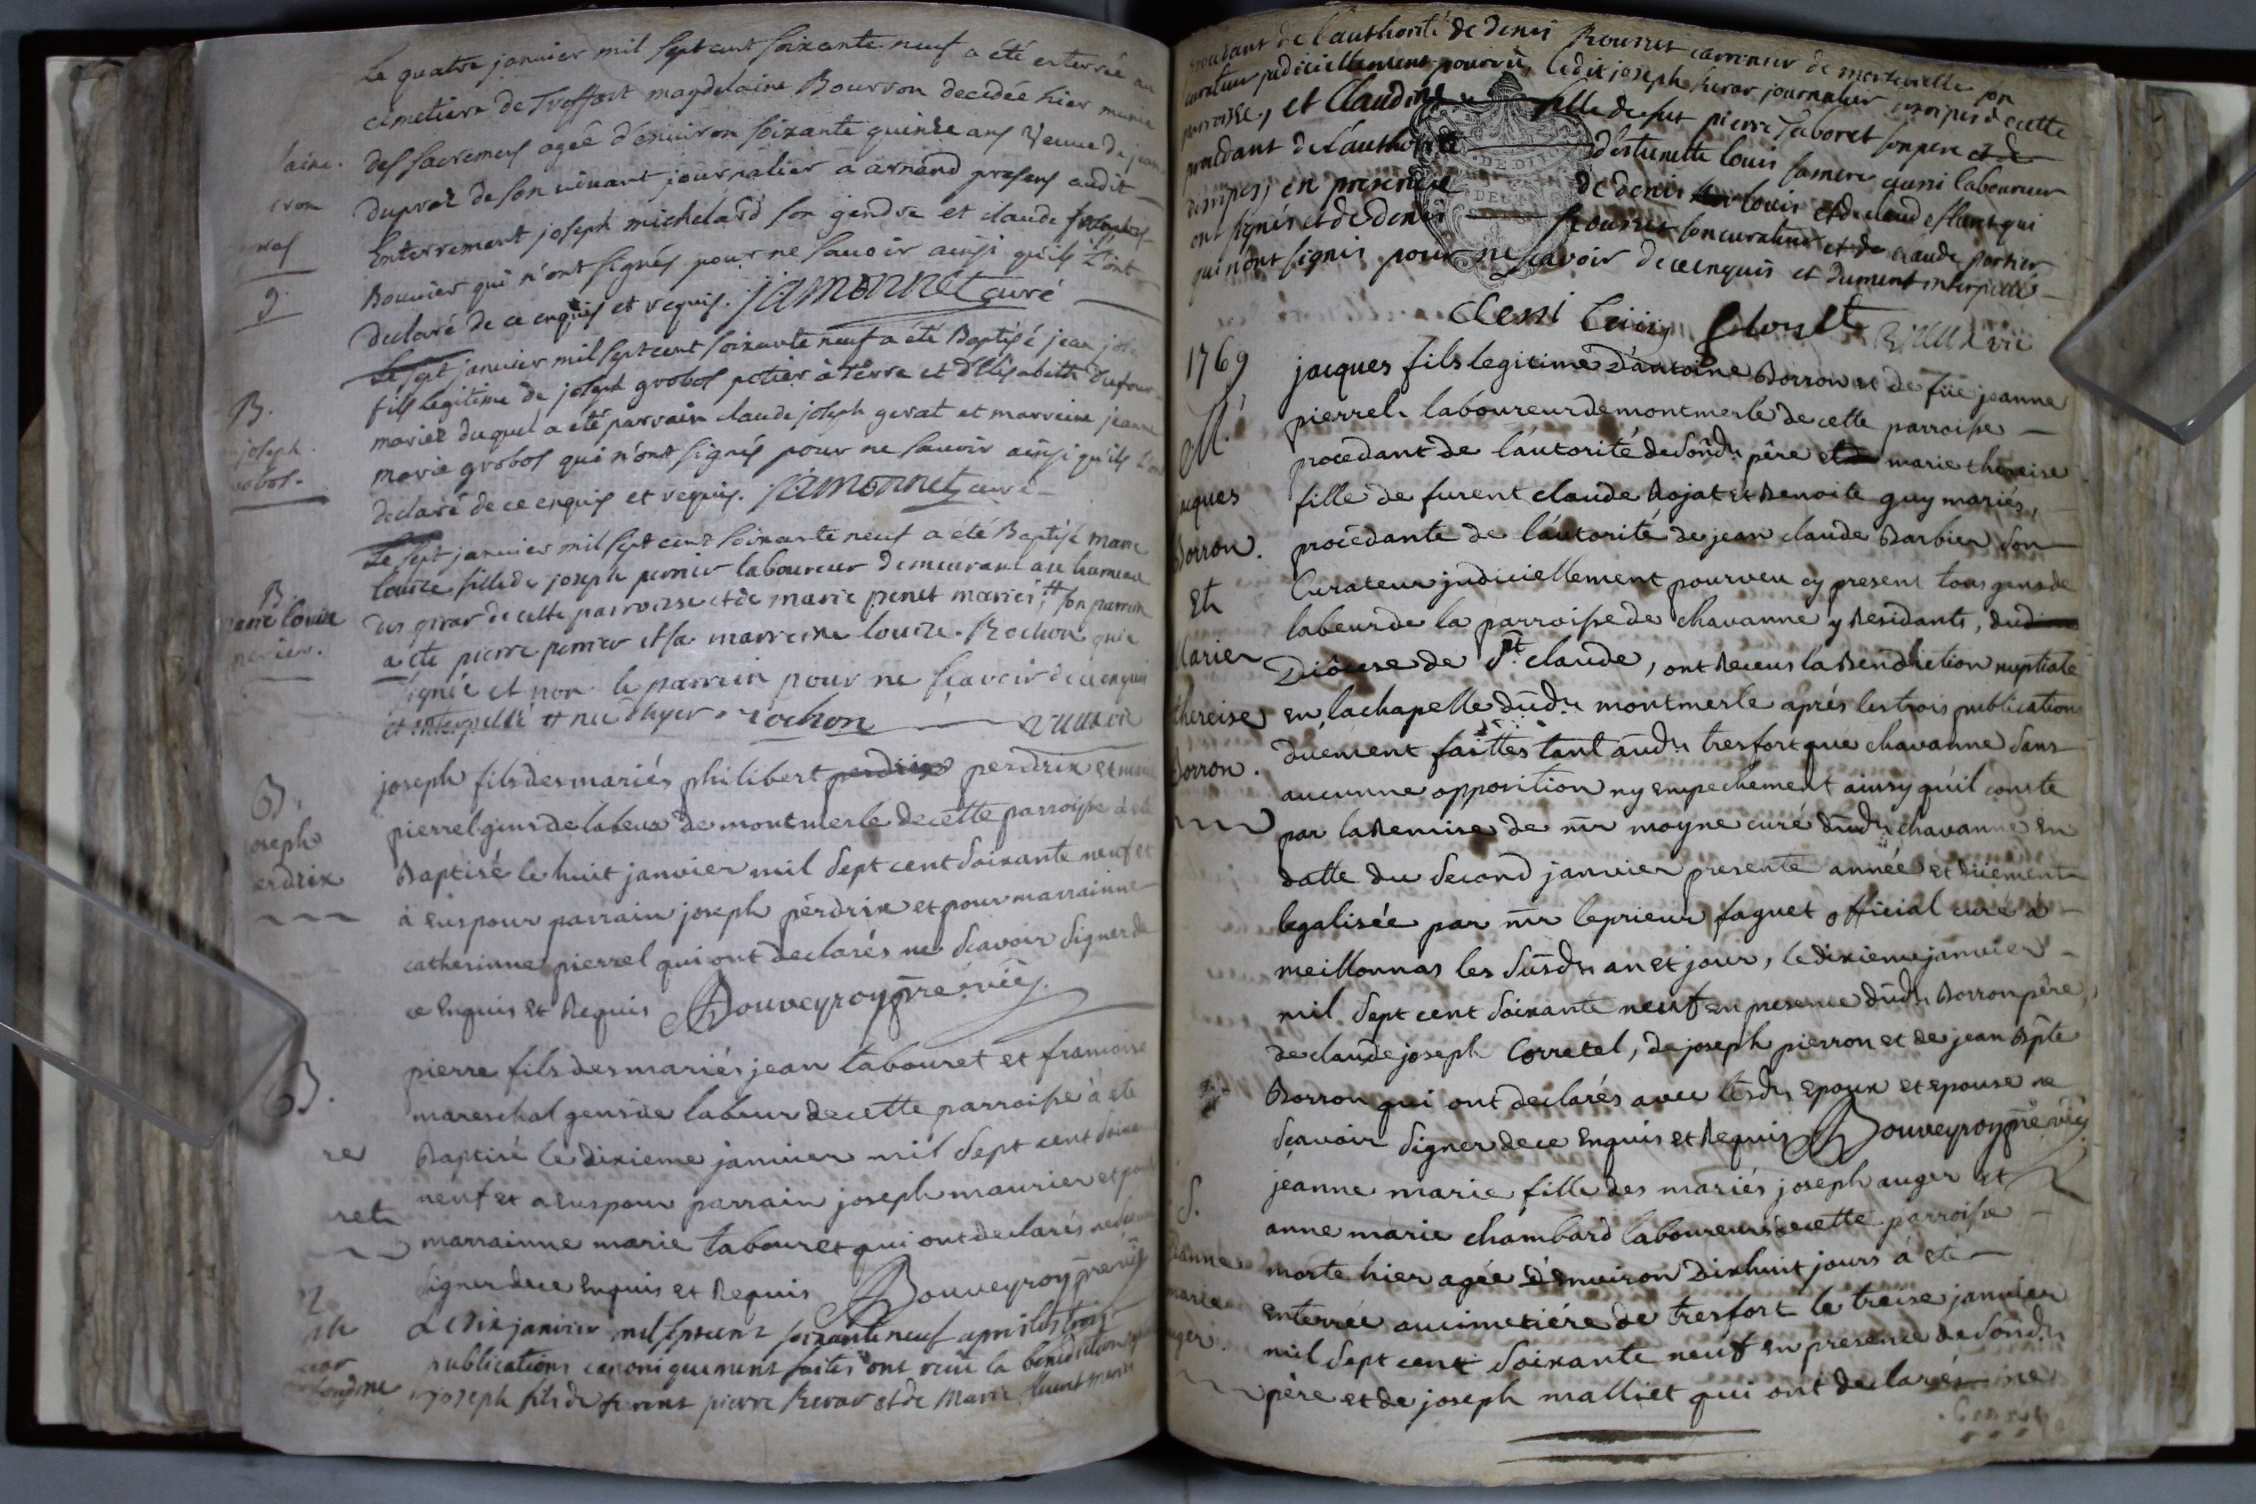 Le quatre janvier mil sept cent soixante neuf a été enterrée au
cimetiere de Treffort magdelaine Bourron decedée hier munie
des sacremens agée d'environ soixante quinze ans Veuve de jean
dupraz de son vivant journalier a arnand presens audit
Enterrement joseph michelard son gendre et claude
Bouvier qui n'ont signés pour ne savoir ainsi qu'ils l'ont
declaré de ce enquis et requis. jamonnet curé
Le sept janvier mil sept cent soixante neuf a été Baptisé jean
fils legitime de joseph grobos potier à terre et d'Elisabeth Dufour
mariez duquel a été parrain claude joseph gerat et marreine jeanne
marie grobos qui n'ont signés pour ne savoir ainsi qu'ils l'ont
declaré de ce enquis et requis. jamonnet curé
B.
joseph
obos
Le sept janvier mil sept cent soixante neuf a été Baptisé marie
louise fille de joseph perrier laboureur demeurant au hameau
des girar de cette parroisse et de marie penet mariés # son parrein
a été pierre perrier et sa marreine louize Rochon qui a
signée et non le parrein pour ne sçavoir de ce enquis
et interpellé # née d'hyer rochon
B.
marie louise
perrier.
joseph fils des mariés philibert perdrix perdrix et
pierrel gens de labeur de montmerle de cette parroisse à eté
Baptisé le huit janvier mil sept cent soixante neuf et
à eus pour parrain joseph pérdrix et pour marrainne
catherinne pierrel qui ont declarés ne scavoir signer de
ce Enquis Et Requis Bouveyroy pre vic
B.
oseph
erdrix
pierre fils des mariés jean tabouret et francoise
mareschal gens de labeur de cette parroisse à eté
Baptisé le dixieme janvier mil sept cent soixante
neuf et a eus pour parrain joseph maurier et pour
marrainne marie tabouret qui ont declarés ne
signer de ce Enquis et Requis Bouveyroy pre vic
B.
re
ret
Le dix janvier mil sept cent soixante neuf aprés les trois
publications canoniquement faites ont reçu la benediction
joseph fils de furent pierre et de Marie
procedant de l'authorité de denis Rousset de son
curateur judiciellement pourvu, ledit joseph journalier de cette
parroisse, et Claudine fille de fut pierre Taboret son pere et de
procédant de l'authorité louis sa mere aussi laboureur
en presence de denis louis et de claude qui
ont signés et de denis Rousset son curateur et de claude portier
qui n'ont signés pour ne sçavoir de ce enquis et dument interpellé
1769
M.
acques
Borron.
Et
Marie
thereise
Borron.
jacques fils legitime d'antoine Borron et de füe jeanne
pierrel laboureur de montmerle de cette parroisse
procedant de l'autorité de sondt père et marie thereise
fille de furent claude Rojat et Benoite guy mariés,
procédante de l'autorité de jean claude Barbier son
Curateur judiciellement pourveu cy present tous gens de
labeur de la parroisse de chavanne y Residants, dud
Diôcese de St. claude, ont Receus la Benediction nuptiale
en la chapelle dudt montmerle aprés les trois publications
düement faittes tant audt tresfort que chavanne sans
aucunne opposition ny empechement ainsy qu'il conste
par la Remise de mr moyne curé dudt chavanne en
datte du second janvier presente année et düement
legalisée par mr le prieur faguet official curé à
meillonnas les susdt an et jour, le dixieme janvier
mil sept cent soixante neuf en presence dudt Borron père,
de claude joseph Corretel, de joseph pierron et de jean Bpte
Borron qui ont declarés avec lesdt Epoux et epouse ne
scavoir signer de ce Enquis et Requis Bouveyroy pre vic
S.
jeanne
marie
auger.
jeanne marie fille des mariés joseph auger et
anne marie chambard laboureurs de cette parroisse
morte hier agée d'Environ Dixhuit jours à eté
enterrée au cimetiére de tresfort le treise janvier
mil sept cent soixante neuf en presence de sondt
père et de joseph malliet qui ont declarés ne